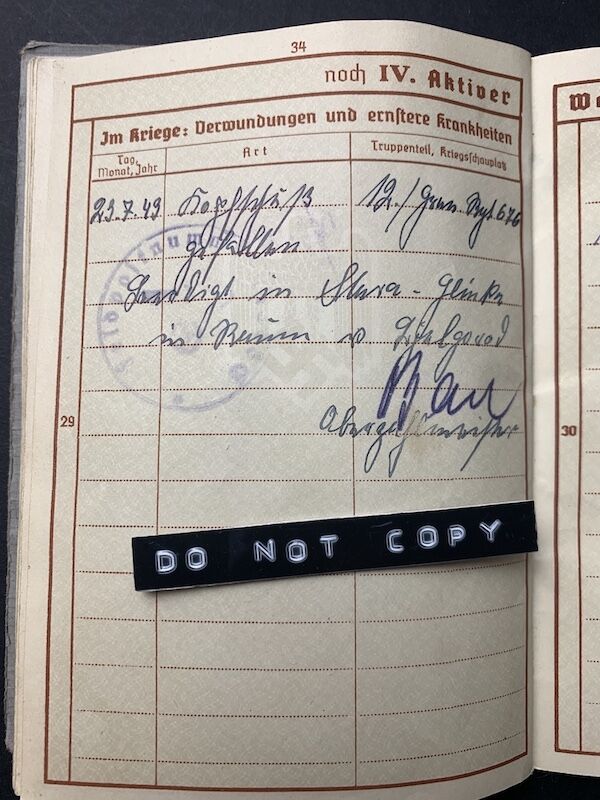 34
noch IV. Aktiver
Im Kriege: Verwundungen und ernstere Krankheiten
Tag, Monat, Jahr
Art
Truppenteil, Kriegsschauplatz
23.7.43 Kopfschuß 12./Gren. Rgt. 676
gefallen
Beerdigt in Stara-Glinka
in Raum v Bjelgorod
Bau
Oberzahlmeister
Feldpostnummer
29
30
DO NOT COPY